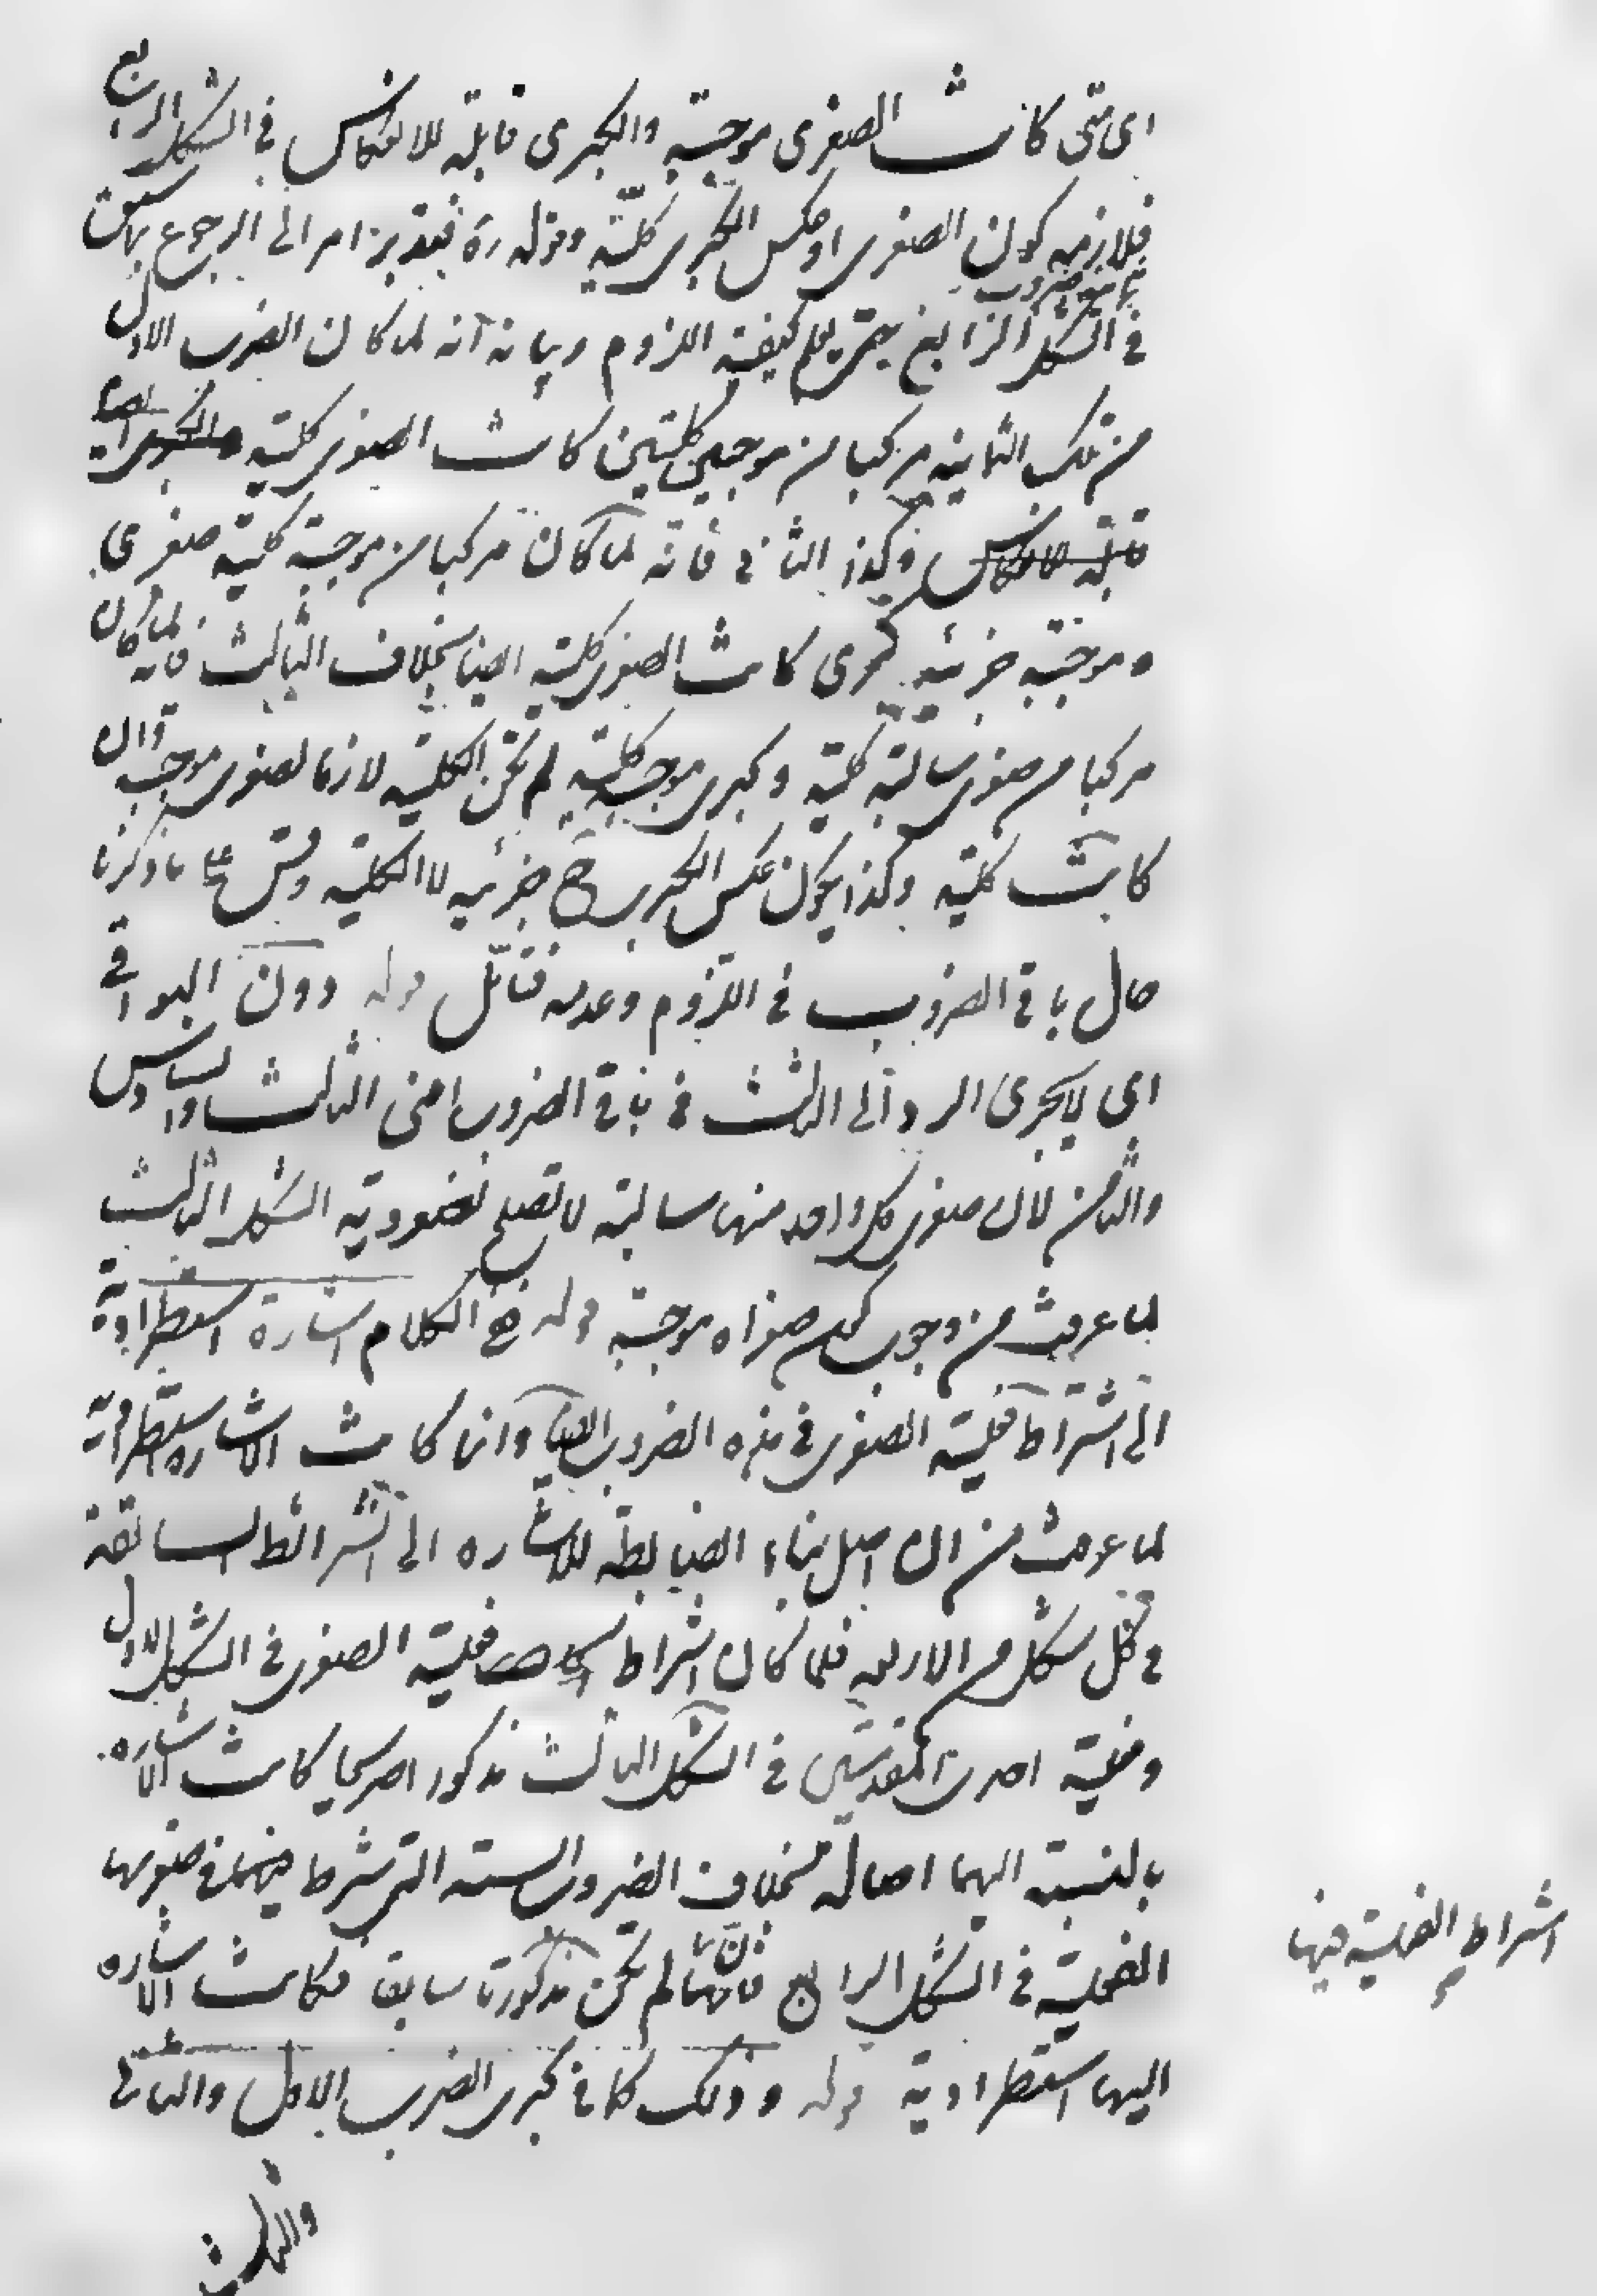 اى متى كانت الصغرى موجبة والكبرى قابلة للانعكاس فى الشكل الرابع
فلازمه كون الصغرى او عكس الكبرى كلية وقوله ره فتدبر امر الى الرجوع بما سبق
ثمانية ضروب
فى الشكل الرابع حتى يعلم كيفية اللزوم وبيانه انه لما كان الضرب الاول
من تلك الثمانية مركبا من موجبتين كليتين كانت الصغرى كلية والكبرى ايضا
قابلة للانعكاس وكذا الثانى فانه لما كان مركبا من موجبة كلية صغرى
وموجبة جزئية كبرى كانت الصغرى كلية ايضا بخلاف الثالث فانه لما كان
مركبا من صغرى سالبة كلية وكبرى موجبة كلية لم تكن الكلية لازما لصغرى موجبة وان
كانت كلية وكذا يكون عكس الكبرى ح جزئية لا الكلية وقس على ما ذكرنا
حال باقى الضروب فى اللزوم وعدمه فتأمل قوله دون البواقى
اى لا يجرى الرد الى الثالث فى باقى الضروب اعنى الثالث والسادس
والثامن لان صغرى كل واحد منها سالبة لا تصلح لصغروية الشكل الثالث
لما عرفت من وجوب كون صغراه موجبة قوله ففى الكلام اشارة استطرادية
الى اشتراط فعلية الصغرى فى هذه الضروب ايضا وانما كانت الاشارة استطرادية
لما عرفت من ان اصل بناء الضابطة للاشارة الى الشرائط السابقة
فى كل شكل من الاربعة فلما كان اشتراط فعلية الصغرى فى الشكل الاول
وفعلية احدى المقدمتين فى الشكل الثالث مذكورا صريحا كانت الاشارة
بالنسبة اليهما اصالة بخلاف الضروب الستة التى شرط فيها فى صغريها
الفعلية فى الشكل الرابع فانها لم تكن مذكورة سابقا فكانت الاشارة
اشتراط الفعلية فيها
اليها استطرادية قوله وذلك كما فى كبرى الضرب الاول والثانى
والثالث